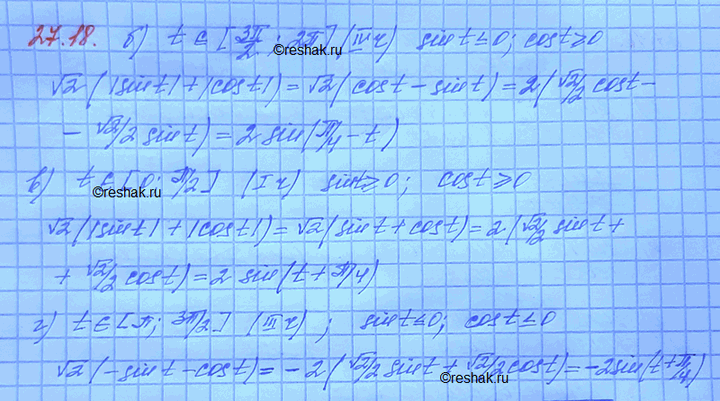 27.18. б) t ∈ [3π/2; 2π] (IV ч) sin t ≤ 0; cos t ≥ 0
©reshak.ru
√2(|sin t| + |cos t|) = √2(cos t - sin t) = 2(√2/2 cos t -
- √2/2 sin t) = 2 sin(π/4 - t)
в) t ∈ [0; π/2] (I ч) sin t ≥ 0; cos t ≥ 0
©reshak.ru
√2(|sin t| + |cos t|) = √2(sin t + cos t) = 2(√2/2 sin t +
+ √2/2 cos t) = 2 sin(t + π/4)
г) t ∈ [π; 3π/2] (III ч); sin t ≤ 0; cos t ≤ 0
√2(-sin t - cos t) = -2(√2/2 sin t + √2/2 cos t) = -2 sin(t + π/4)
©reshak.ru